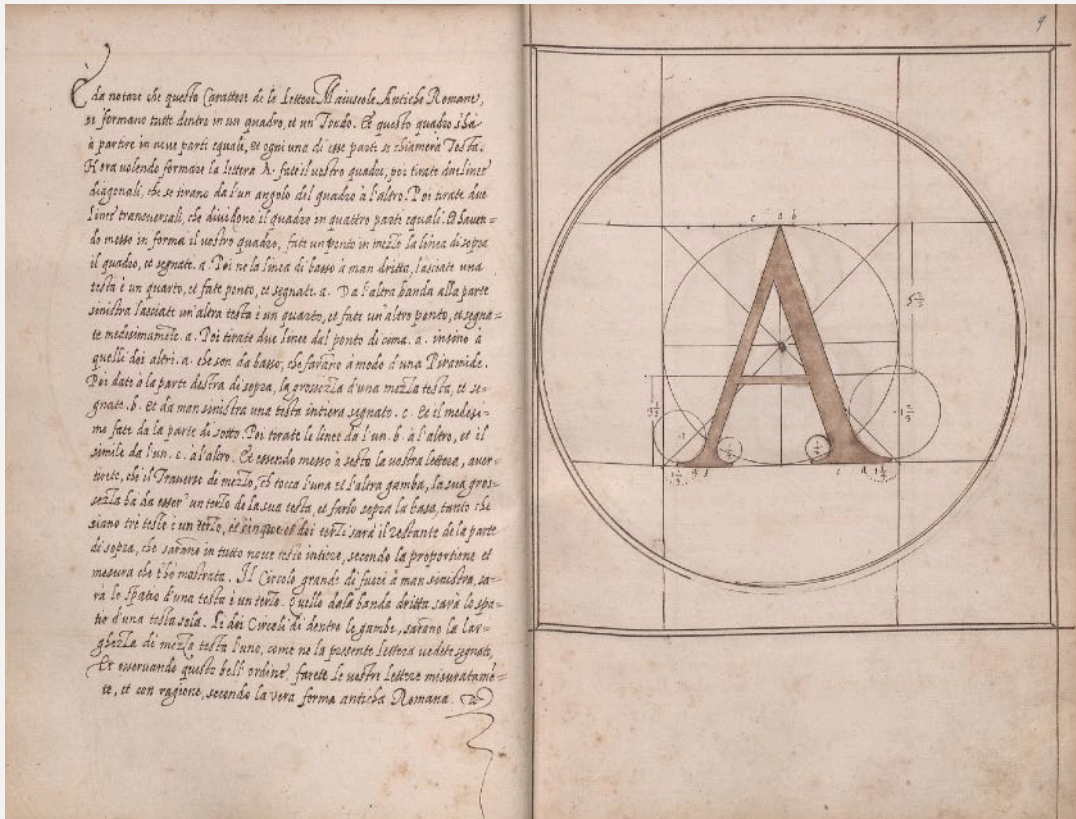 È da notare che questo Carattere de le Lettere Maiuscole Antiche Romane,
si formano tutte dentro in un quadro, et un Tondo. Et questo quadro s'hà
à partire in nove parti equali, et ogni una di esse parte se chiamerà Testa.
Hora volendo formare la lettera A. fate il vostro quadro, poi tirate due linee
diagonali, che se tirano da l'un angolo del quadro à l'altro. Poi tirate due
linee transversali, che dividono il quadro in quattro parte equali. Et haven=
do messo in forma il vostro quadro, fate un ponto in mezzo la linea di sopra
il quadro, et segnate. a. Poi ne la linea di basso à man dritta, lasciate una
testa è un quarto, et fate ponto, et segnate. a. Da l'altra banda alla parte
sinistra lasciate un'altra testa è un quarto, et fate un altro ponto, et segna=
te medesimamẽte. a. Poi tirate due linee dal ponto di cima. a. insino à
quelli doi altri. a. che son da basso, che farãno à modo d'una Piramide.
Poi date à la parte destra di sopra, la grossezza d'una mezza testa, et se=
gnate. b. et da man sinistra una testa intiera segnato. c. Et il medesi=
mo fate da la parte di sotto. Poi tirate le linee da l'un. b. à l'altro, et il
simile da l'un. c. à l'altro. Et essendo messo à sesto la vostra lettera, aver=
tirete, che il Traverso di mezzo, ch tocca l'una et l'altra gamba, la sua gros=
sezza hà da esser' un terzo de la sua testa, et farlo sopra la basa, tanto che
siano tre teste è un terzo, et cinque et doi terzi sarà il restante de la parte
di sopra, che sarãno in tutto nove teste intiere, secondo la proportione et
mesura che t'hò mostrata. Il Circolo grande di fuori à man sinistra, sa=
rà lo spatio d'una testa è un terzo. Quello dala banda dritta sarà lo spa=
tio d'una testa sola. Li doi Circoli di dentro le gambe, sarano la lar=
ghezza di mezza testa l'uno, come ne la presente lettera vedete segnato,
Et osservando questo bell' ordine' farete le vostre lettere misuratamẽ=
te, et con ragione, secondo la vera forma anticha Romana.
9
c a b
5 2/3
A